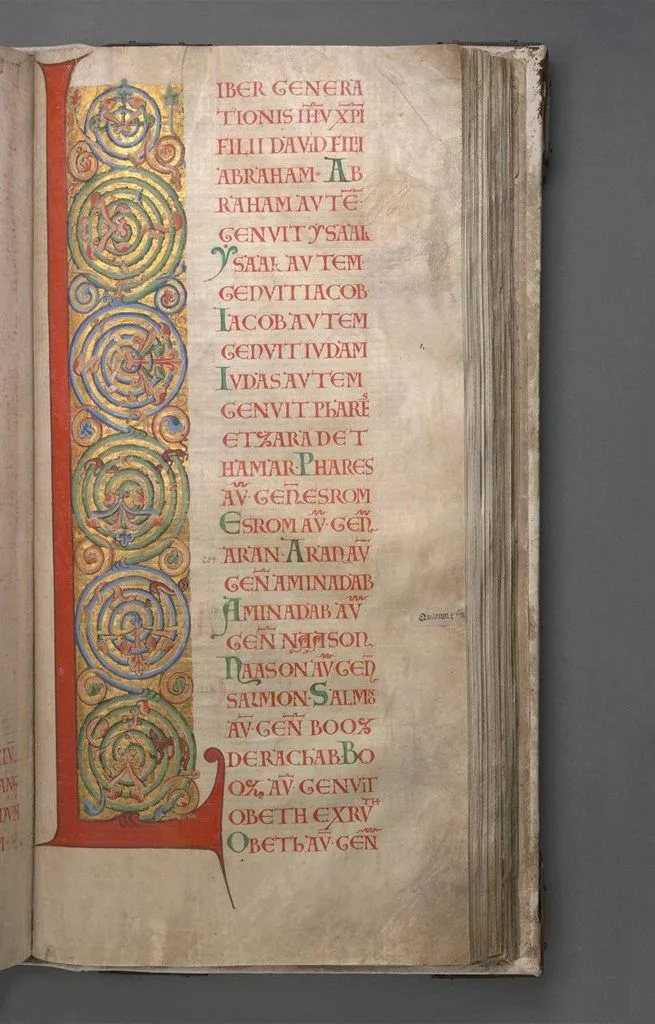 LIBER GENERA
TIONIS IHV XPI
FILII DAVID FILII
ABRAHAM· AB
RAHAM AVTE
GENVIT YSAAK
YSAAK AVTEM
GENVIT IACOB
IACOB AVTEM
GENVIT IVDAM
IVDAS AVTEM
GENVIT PHARES
ET ZARA DE T
HAMAR· PHARES
AV· GEN ESROM
ESROM AV· GEN
ARAN· ARAN AV
GEN AMINADAB
AMINADAB AV
GEN NAASON
NAASON AV GEN
SALMON· SALMO
AV· GEN BOOZ
DE RACHAB BO
OZ AV GENVIT
OBETH EX RVTH
OBETH AV· GEN